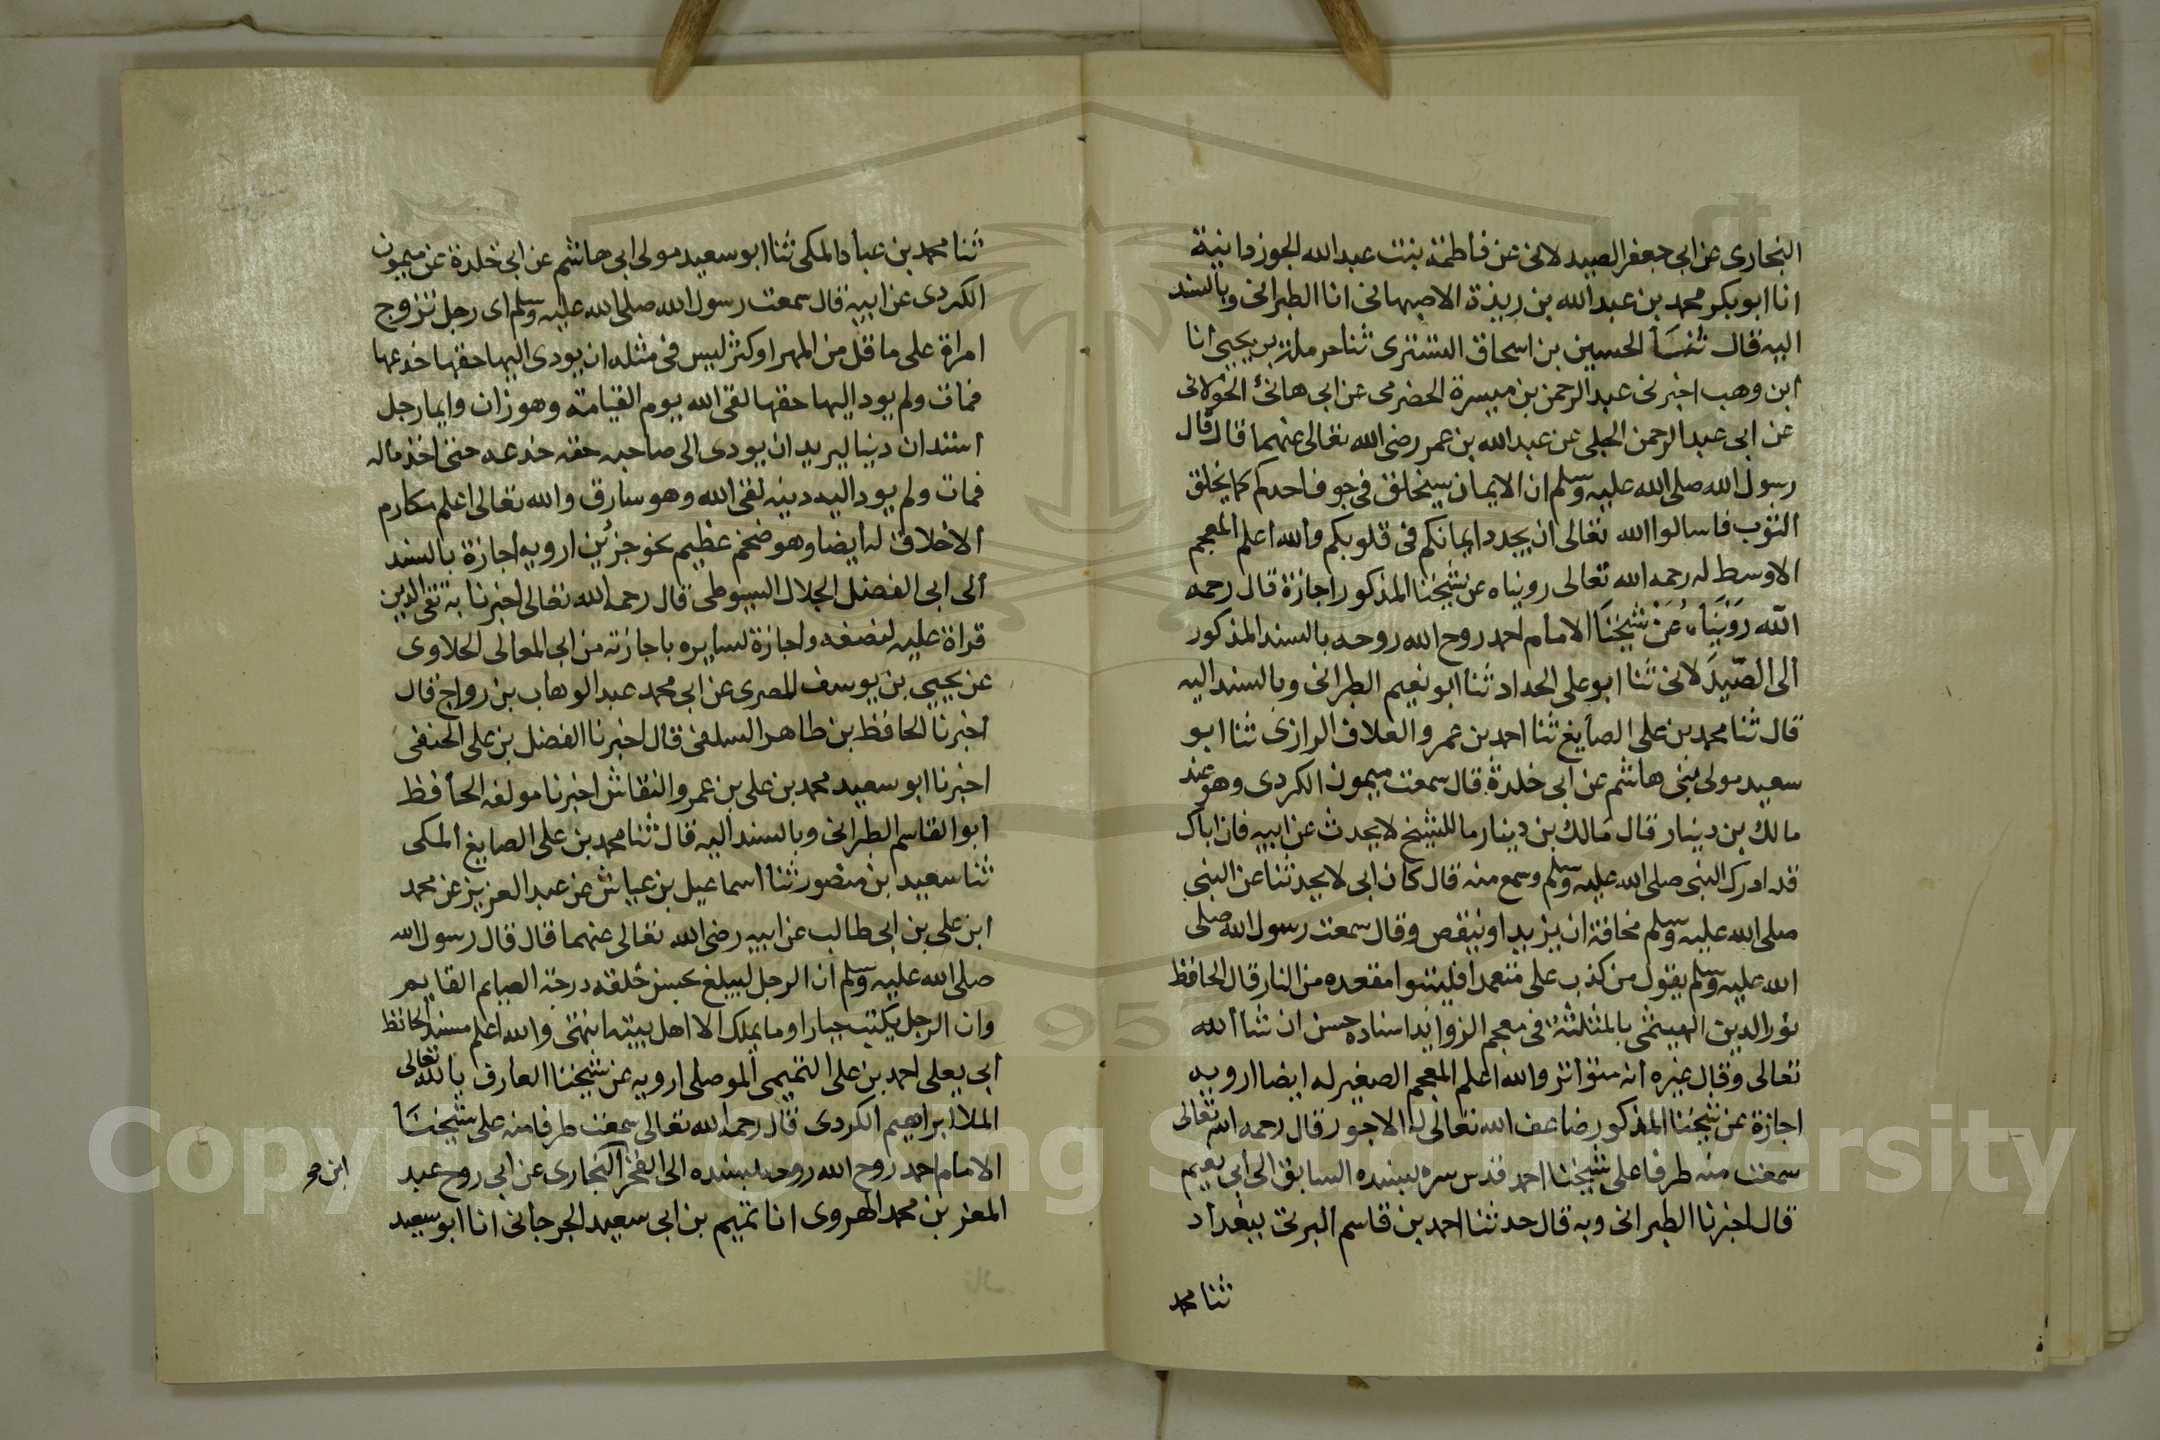 البخارى عن ابى جعفر الصيدلانى عن فاطمة بنت عبدالله الجوزدانية
انا ابو بكر محمد بن عبدالله بن ريذة الاصبهانى انا الطبرانى وبالسند
اليه قال ثنا الحسين بن اسحاق التسترى ثنا حرملة بن يحيى انا
ابن وهب اخبرنى عبد الرحمن بن ميسرة الحضرمى عن ابى هانئ الخولانى
عن ابى عبد الرحمن الحبلى عن عبد الله بن عمر رضى الله تعالى عنهما قال قال
رسول الله صلى الله عليه وسلم ان الايمان ليخلق فى جوف احدكم كما يخلق
الثوب فاسالوا الله تعالى ان يجدد ايمانكم فى قلوبكم والله اعلم المعجم
الاوسط له رحمه الله تعالى رويناه عن شيخنا المذكور اجازة قال رحمه
الله رويناه عن شيخنا الامام احمد روح الله روحه بالسند المذكور
الى الصيدلانى ثنا ابو على الحداد ثنا ابو نعيم الطبرانى وبالسند اليه
قال ثنا محمد بن على الصايغ ثنا احمد بن عمرو العلاف الرازى ثنا ابو
سعيد مولى بنى هاشم عن ابى خلدة قال سمعت ميمون الكردى وهو عند
مالك بن دينار قال مالك بن دينار ما للشيخ لا يحدث عن ابيه فان اباك
قد ادرك النبى صلى الله عليه وسلم وسمع منه قال كان ابى لا يحدثنا عن النبى
صلى الله عليه وسلم مخافة ان يزيد او ينقص وقال سمعت رسول الله صلى
الله عليه وسلم يقول من كذب على متعمدا فليتبوا مقعده من النار قال الحافظ
نور الدين الهيثمى بالمثلثة فى معجم الزوائد اسناده حسن ان شا الله
تعالى وقال غيره انه متواتر والله اعلم المعجم الصغير له ايضا ارويه
اجازة عن شيخنا المذكور ضاعف الله تعالى له الاجور قال رحمه الله تعالى
سمعت منه طرفا على شيخنا احمد قدس سره بسنده السابق الى ابى نعيم
قال اخبرنا الطبرانى وبه قال حدثنا احمد بن قاسم البرتى ببغداد
ثنا محمد
ثنا محمد بن عباد المكى ثنا ابو سعيد مولى ابى هاشم عن ابى خلدة عن ميمون
الكردى عن ابيه قال سمعت رسول الله صلى الله عليه وسلم اى رجل تزوج
امراة على ما قل من المهر او كثر ليس فى مثله ان يودى اليها حقها خدعها
فمات ولم يود اليها حقها لقى الله يوم القيامة وهو زان وايما رجل
استدان دينا ليريد ان يودى الى صاحبه حقه خدعه حتى اخذ ماله
فمات ولم يود اليه دينه لقى الله وهو سارق والله تعالى اعلم مكارم
الاخلاق له ايضا وهو ضخم عظيم نحو جزئين ارويه اجازة بالسند
الى ابى الفضل الجلال السيوطى قال رحمه الله تعالى اخبرنا به تقى الدين
قراة عليه لنصفه واجازة لسايره باجازته من ابى المعالى الحلاوى
عن يحيى بن يوسف المصرى عن ابى محمد عبد الوهاب بن رواج قال
اخبرنا الحافظ بن طاهر السلفى قال اخبرنا الفضل بن على الحنفى
اخبرنا ابو سعيد محمد بن على بن عمرو النقاش اخبرنا مولفه الحافظ
ابو القاسم الطبرانى وبالسند اليه قال ثنا محمد بن على الصايغ المكى
ثنا سعيد ابن منصور ثنا اسماعيل بن عياش عن عبد العزيز عن محمد
ابن على بن ابى طالب عن ابيه رضى الله تعالى عنهما قال قال رسول الله
صلى الله عليه وسلم ان الرجل ليبلغ بحسن خلقه درجة الصايم القايم
وان الرجل يكتب جبارا وما يملك الا اهل بيته انتهى والله اعلم مسند الحافظ
ابى يعلى احمد بن على التميمى الموصلى ارويه عن شيخنا العارف بالله تعالى
الملا ابراهيم الكردى قال رحمه الله تعالى سمعت طرفا منه على شيخنا
الامام احمد روح الله روحه بسنده الى الفخر البخارى عن ابى روح عبد
المعز بن محمد الهروى انا تميم بن ابى سعيد الجرجانى انا ابو سعيد
Copyright © King Saud University
1957